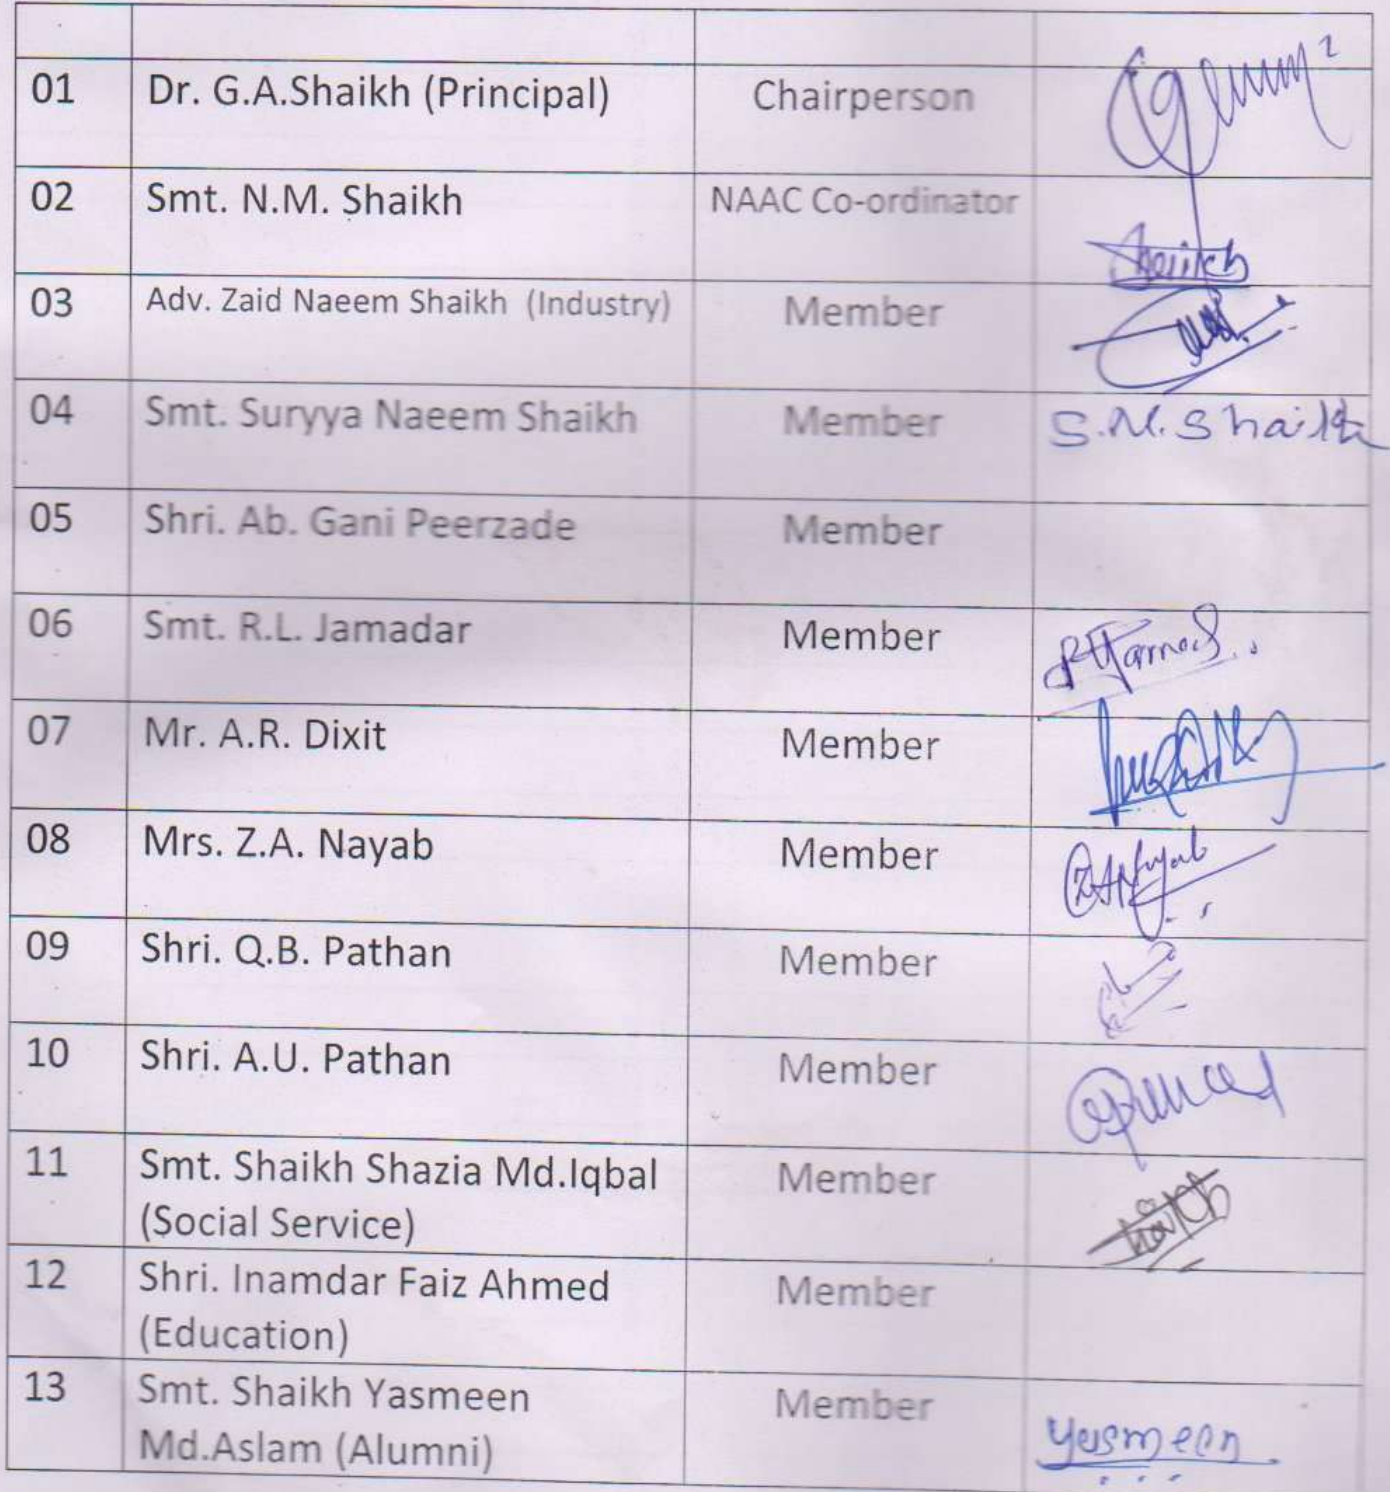 01 Dr. G.A.Shaikh (Principal) Chairperson
02 Smt. N.M. Shaikh NAAC Co-ordinator
Shaikh
03 Adv. Zaid Naeem Shaikh (Industry) Member
04 Smt. Suryya Naeem Shaikh Member S.N.Shaikh
05 Shri. Ab. Gani Peerzade Member
06 Smt. R.L. Jamadar Member
07 Mr. A.R. Dixit Member
08 Mrs. Z.A. Nayab Member ZANayab
09 Shri. Q.B. Pathan Member
10 Shri. A.U. Pathan Member
11 Smt. Shaikh Shazia Md.Iqbal Member
(Social Service)
12 Shri. Inamdar Faiz Ahmed Member
(Education)
13 Smt. Shaikh Yasmeen Member
Md.Aslam (Alumni) Yasmeen